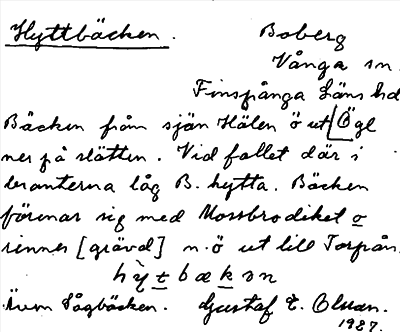 Hyttbäcken. Boberg
Vånga sn.
Finspånga Läns hd
Bäcken från sjön Hålen ö ut Ögl
ner på slätten. Vid fallet där i
branterna låg B. hytta. Bäcken
förenar sig med Mossbrodiket o
rinner [grävd] n. ö ut till Torpån.
Även Sågbäcken. Gustaf E. Olsson.
1927.